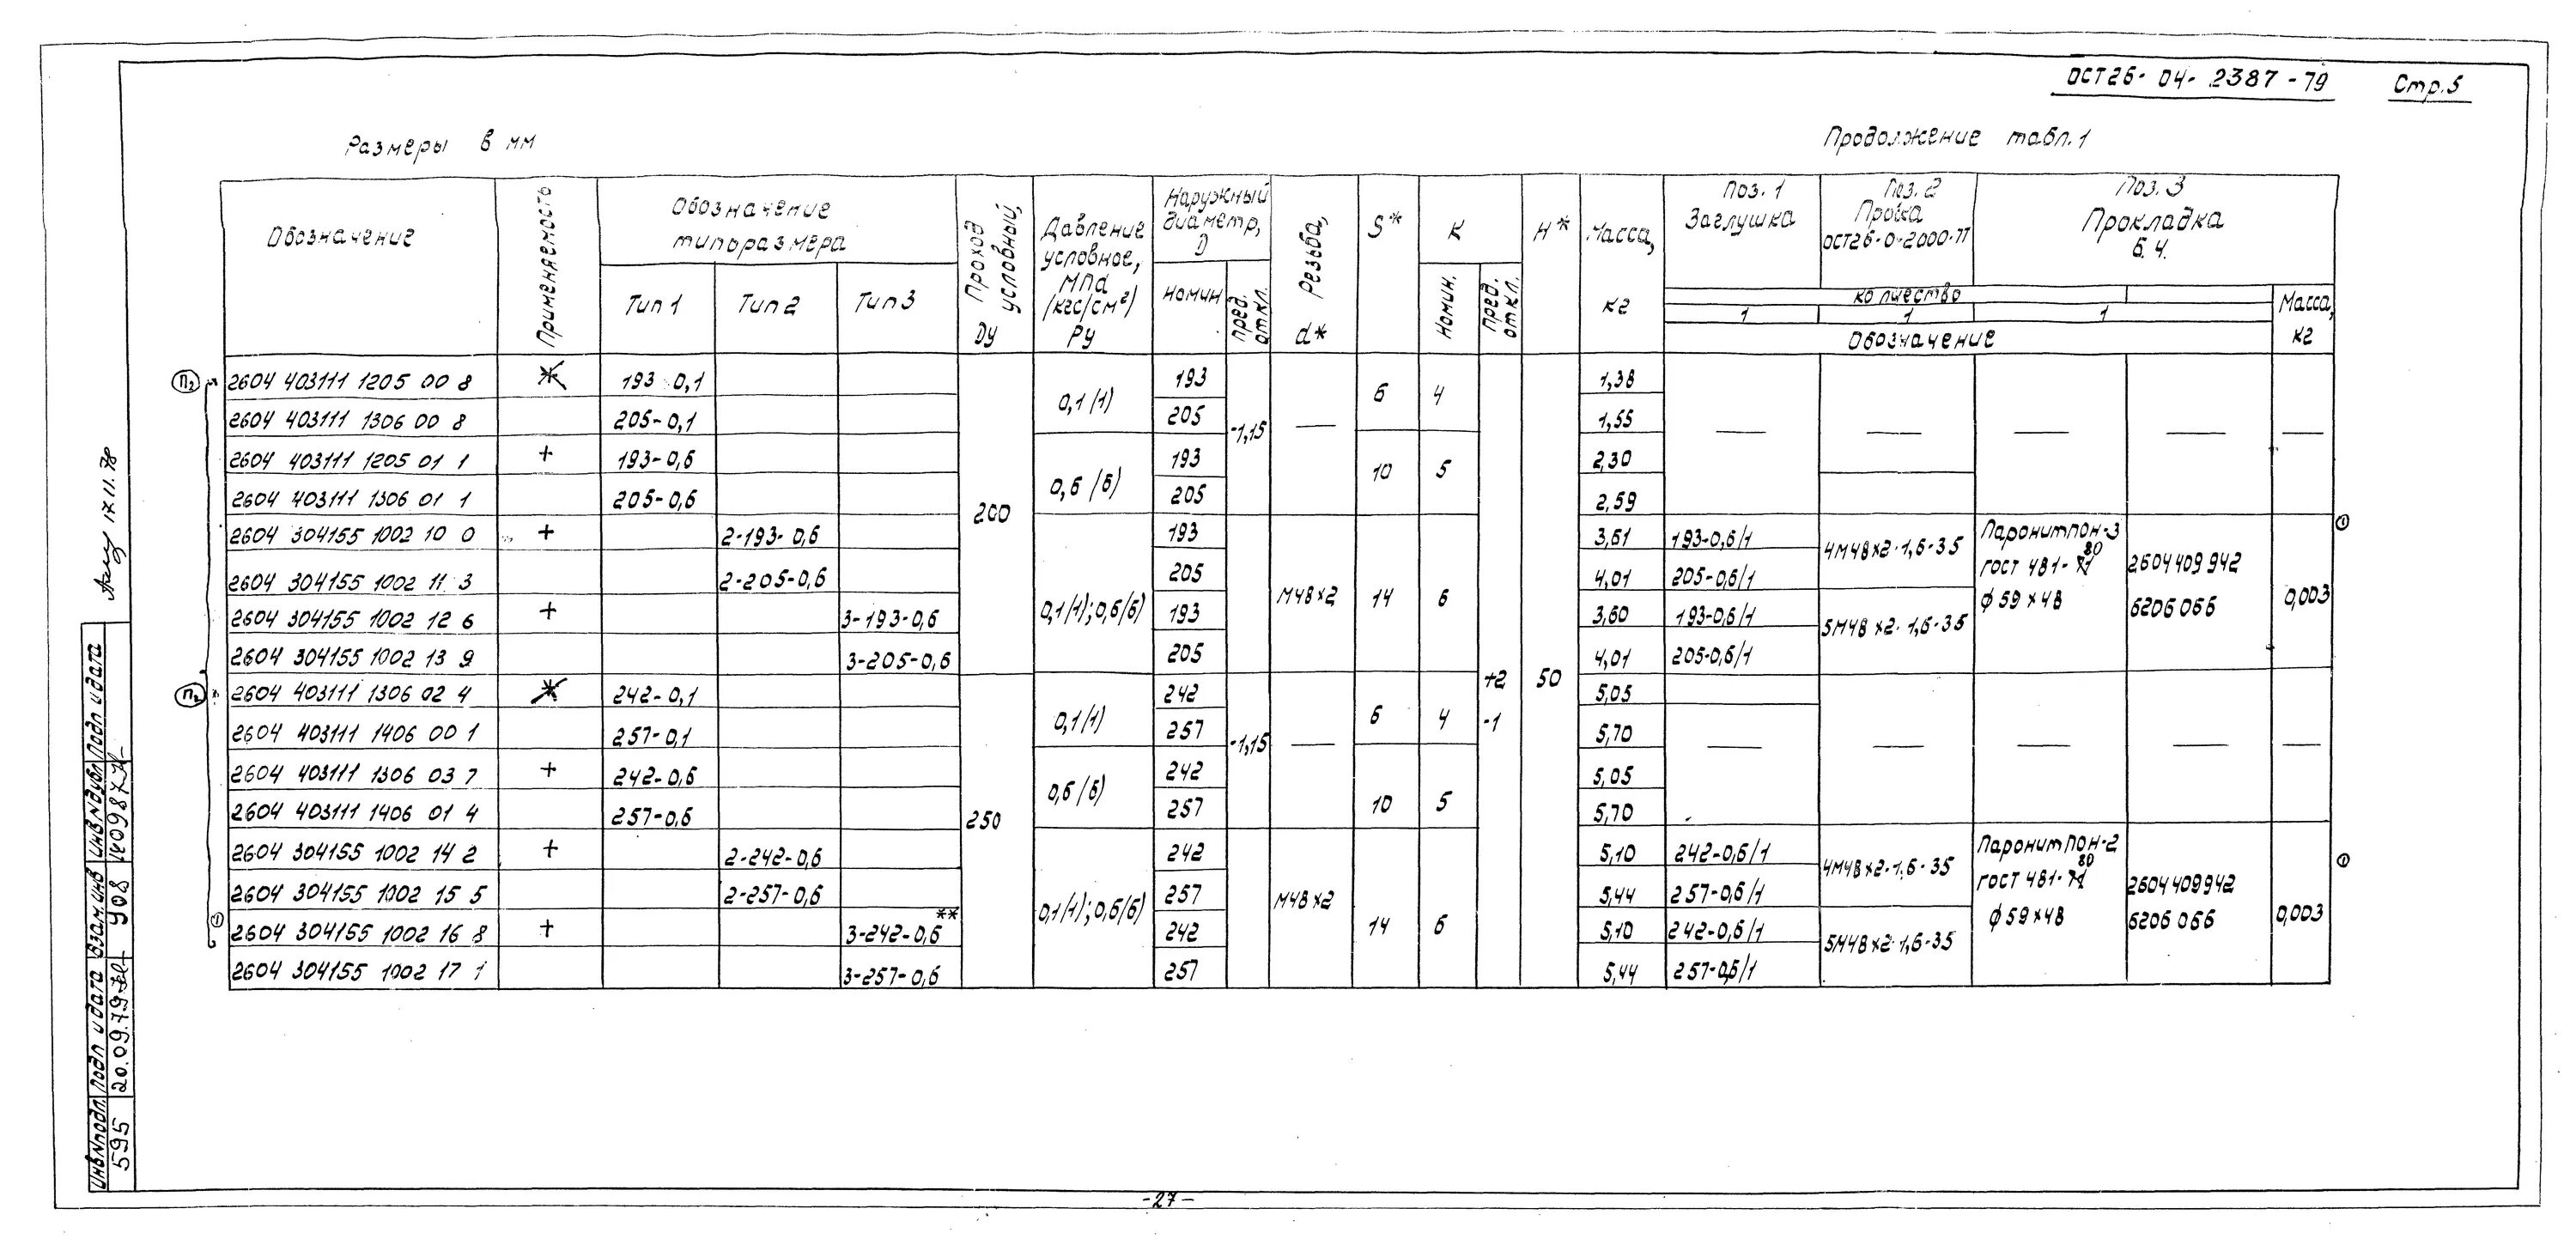 ОСТ26-04-2387-79 Стр.5
Размеры в мм
Продолжение табл.1
Обозначение
Применяемость
Обозначение типоразмера
Тип 1
Тип 2
Тип 3
Проход условный, Ду
Давление условное, МПа (кгс/см²) Ру
Наружный диаметр, D
Номин
пред. откл.
Резьба, d*
S*
К
Номин.
пред. откл.
Н*
Масса, кг
Поз. 1 Заглушка
Поз. 2 Пробка
Поз. 3 Прокладка Б.Ч.
1 1 1
Обозначение
Масса, кг
П2 2604 403111 1205 00 8 193-0,1 193 1,38
2604 403111 1306 00 8 205-0,1 0,1(1) 205 6 4 1,55
2604 403111 1205 01 1 + 193-0,6 193 -1,15 — 2,30 — — — — —
2604 403111 1306 01 1 205-0,6 0,6(6) 205 10 5 2,59
200
2604 304155 1002 10 0 + 2-193-0,6 193 3,61 193-0,6/1 4М48х2-1,6-35 Паронит ПОН-3
2604 304155 1002 11 3 2-205-0,6 205 4,01 205-0,6/1 ГОСТ 481-80 2604409942
2604 304155 1002 12 6 + 3-193-0,6 0,1(1);0,6(6) 193 М48х2 14 6 3,60 193-0,6/1 5М48х2-1,6-35 ф59х48 6206066 0,003
2604 304155 1002 13 9 3-205-0,6 205 4,01 205-0,6/1
П2 2604 403111 1306 02 4 242-0,1 242 +2 50 5,05
2604 403111 1406 00 1 257-0,1 0,1(1) 257 6 4 -1 5,70
2604 403111 1306 03 7 + 242-0,6 242 -1,15 — 5,05 — — — — —
2604 403111 1406 01 4 257-0,6 0,6(6) 257 10 5 5,70
250
2604 304155 1002 14 2 + 2-242-0,6 242 5,10 242-0,6/1 4М48х2-1,6-35 Паронит ПОН-2
2604 304155 1002 15 5 2-257-0,6 257 5,44 257-0,6/1 ГОСТ 481-80 2604409942
2604 304155 1002 16 8 + 3-242-0,6** 0,1(1);0,6(6) 242 М48х2 14 6 5,10 242-0,6/1 5М48х2-1,6-35 ф59х48 6206066 0,003
2604 304155 1002 17 1 3-257-0,6 257 5,44 257-0,6/1
17.11.78
Инв№подл. Подп и дата Взам.инв Инв№дубл Подп и дата
595 20.09.79 908
-27-